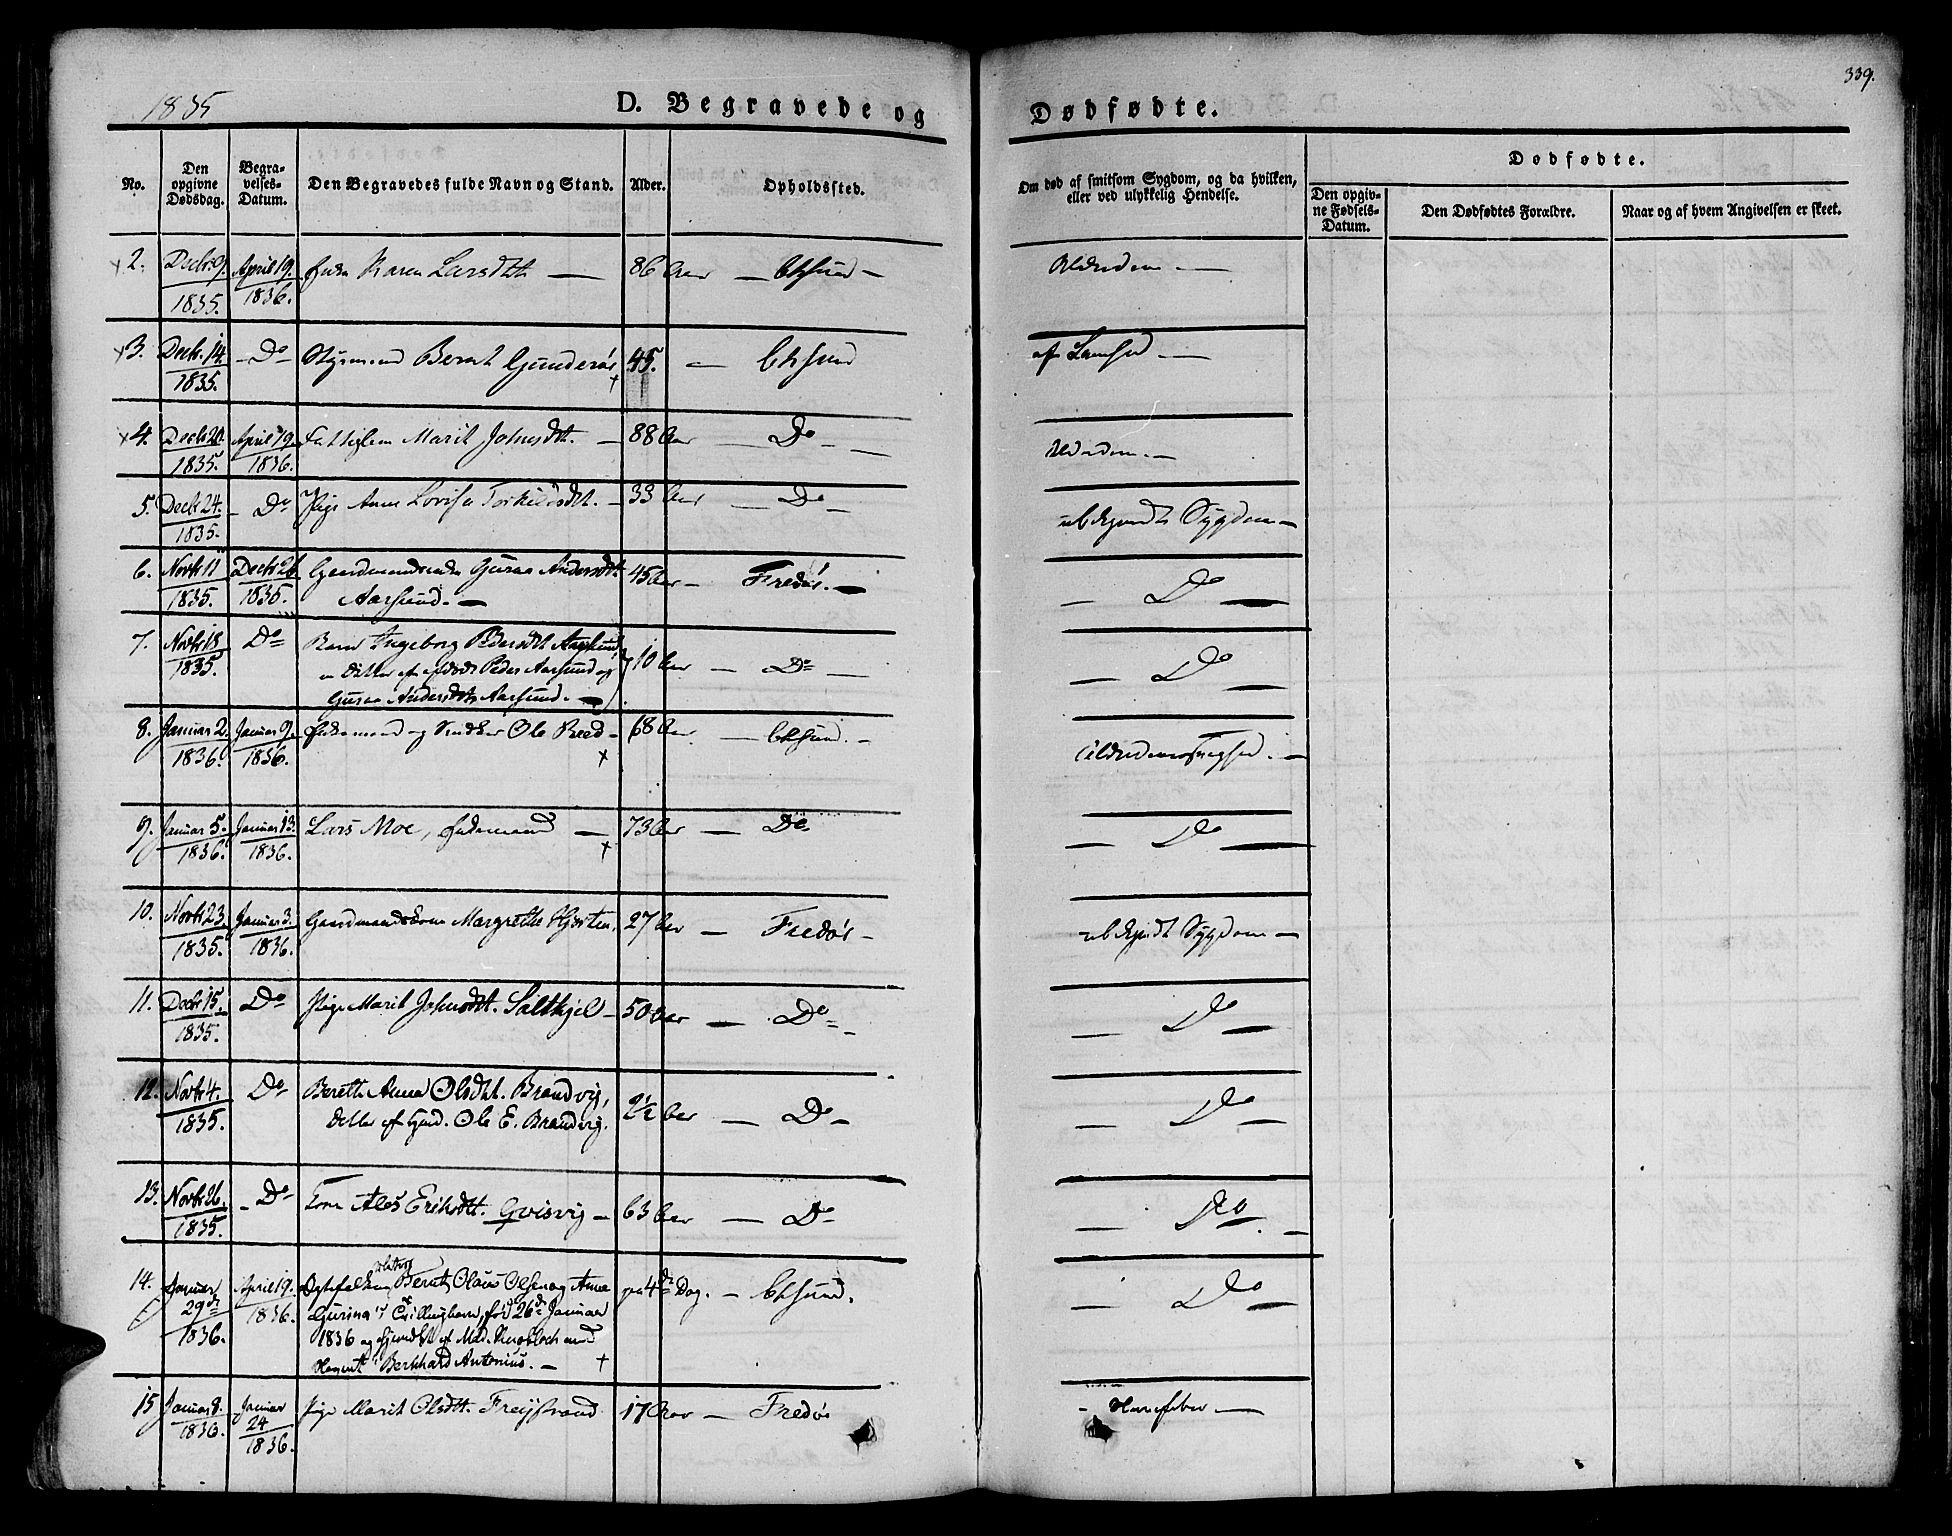 339.
1835
D. Begravede og
Dødfødte.
No.
Den opgivne Dødsdag.
Begravelses-Datum.
Den Begravedes fulde Navn og Stand.
Alder.
Opholdssted.
Om død af smitsom Sygdom, og da hvilken,
eller ved ulykkelig Hendelse.
Dødfødte.
Den opgivne Fødsels-Datum.
Den Dødfødtes Forældre.
Naar og af hvem Angivelsen er skeet.
2. Decbr 9. 1835. April 19. 1836. Enke Karen Larsdtt — 86 Aar — Chsund —
Alderdom. —
3. Decbr. 14. 1835. – Do Styrmand Bernt 45. — Chsund
af
4. Decbr 20. 1835. April 19. 1836. Fattiglem Marit Johnsdtt. — 88 Aar — Do —
Alderdom. —
5. Decbr 24. 1835. – Do Pige Ane Lovisa Torkildsdtt. – 33 Aar — Do —
ubekjendt Sygdom —
6. Novbr 11 1835. Decbr 26 1835. Gaardmandsenke Guraa Andersdtt
Aarsund. — 45 Aar — Fredø. —
— Do —
7. Novbr 18 1835. Do Barn Ingeborg Pedersdtt Aarsund,
Datter af afdøde Peder Aarsund og
Guraa Andersdtt Aarsund. — 10 Aar — Do —
— Do —
8. Januar 2. 1836. Januar 9. 1836. Enkemand og Snedker Ole Breed – 68 Aar — Chsund. —
Alderdomssvaghed. —
9. Januar 5. 1836. Januar 13. 1836. Lars Moe, Enkemand — 73 Aar — Do
— Do —
10. Novbr 23. 1835. Januar 3. 1836. Gaardmandskone Margrethe 27 Aar — Fredø —
ubekjendt Sygdom —
11. Decbr 15. 1835. Do Pige Marit Johnsdtt. Saltkjel – 50 Aar — Do —
— Do —
12. Novbr 4. 1835. Do Bereth Anna Olsdtt. Brandvig,
Datter af Ole E. Brandvig. 2½ Aar — Do —
— Do —
13. Novbr 26. 1835. – Do Kone Ales Eriksdtt. Gvisvig – 63 Aar — Do
— Do —
14. Januar 29de 1836. April 19. 1836. Bernt Olaus Olsen og Anna
født 26de Januar
1836 og af Mad. Knobloch med
Navnet Bernhard Antonius. — paa 4de Dag. — Chsund.
— Do —
15 Januar 8. 1836. Januar 24 1836. Pige Marit Olsdtt. Freijstrand 17 Aar — Fredø